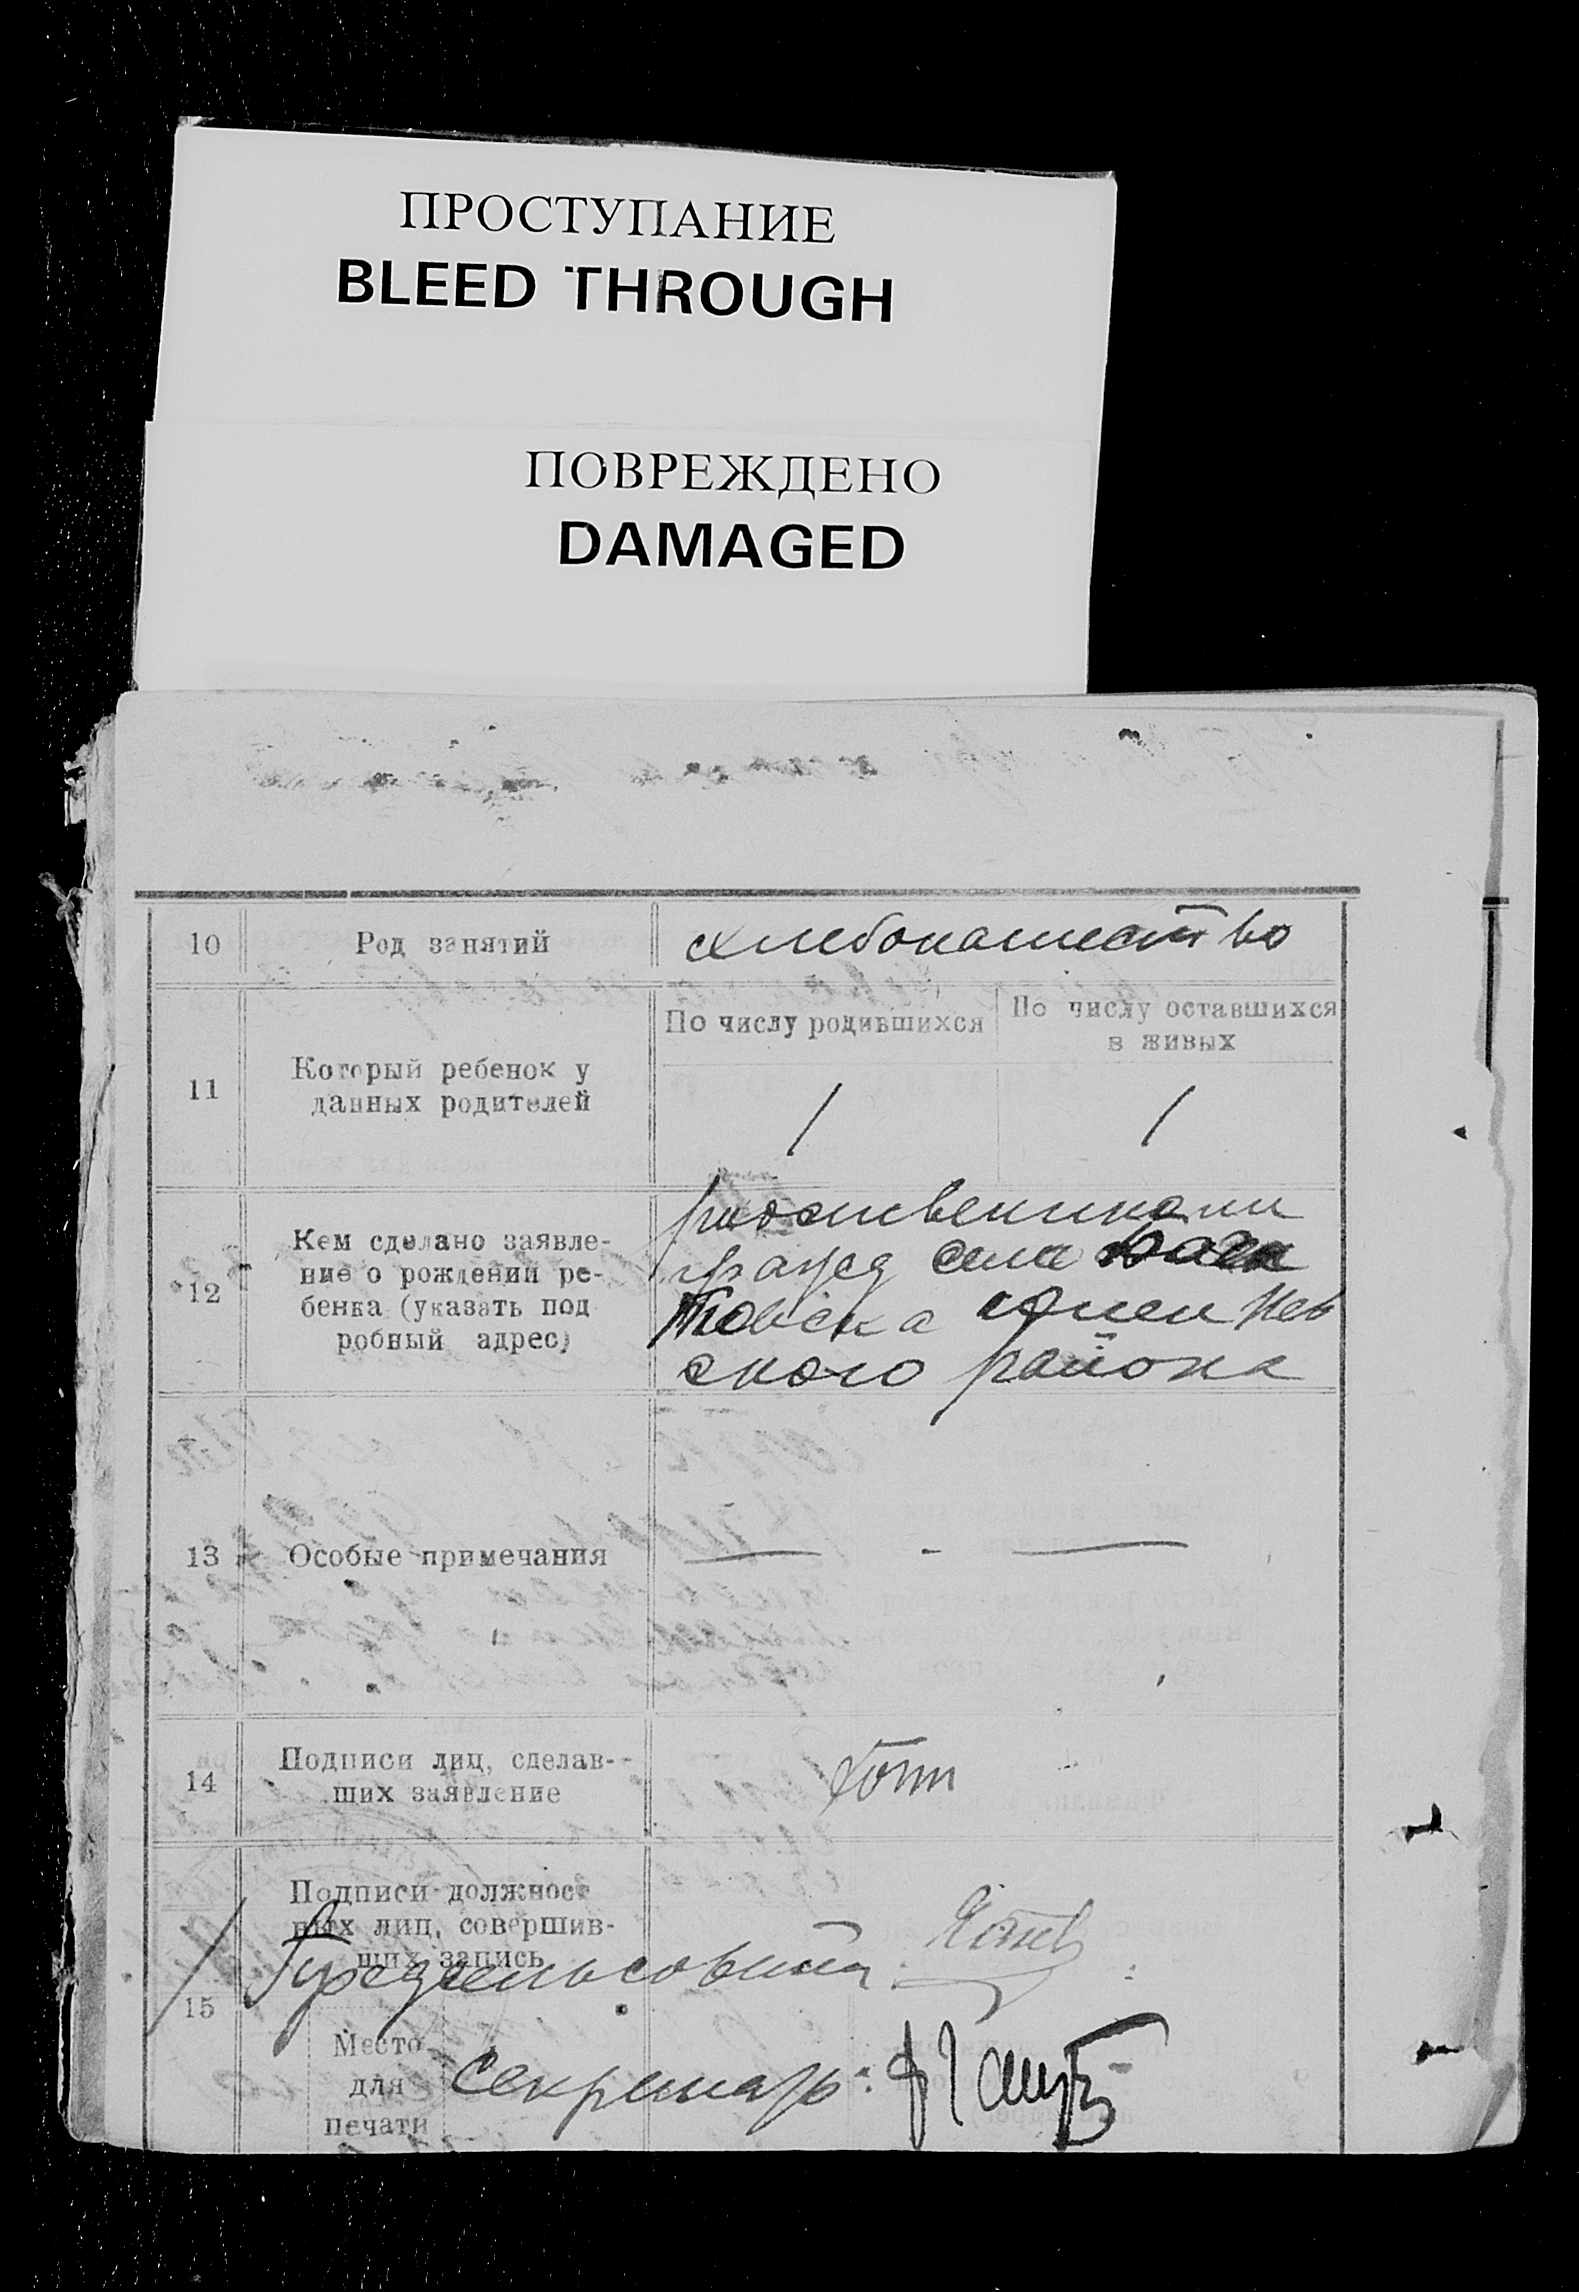 ПРОСТУПАНИЕ
BLEED THROUGH
ПОВРЕЖДЕНО
DAMAGED
10
Род занятий
хлебопашество
11
Который ребенок у
данных родителей
По числу родившихся
По числу оставшихся
в живых
1
1
12
Кем сделано заявле-
ние о рождении ре-
бенка (указать под
робный адрес)
родственниками
гражд села
ского района
13
Особые примечания
— - —
14
Подписи лиц, сделав-
ших заявление
15
Подписи должност
ных лиц, совершив-
ших запись
Место
для
печати
секретарь: